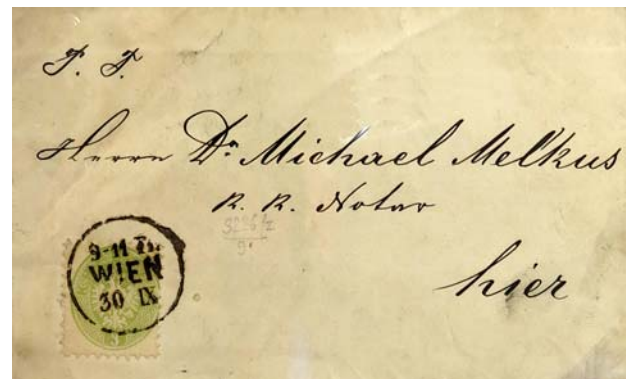 P. T.
Herrn Dr. Michael Melkus
K. K. Notar
hier
9-11
WIEN
30 IX
3